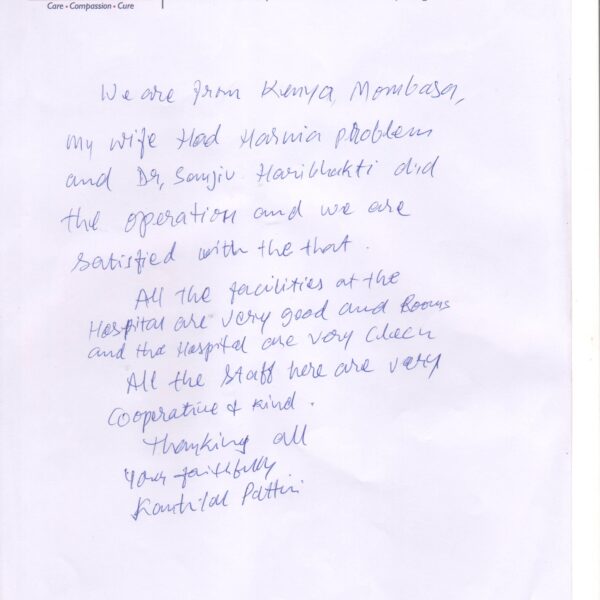 Care • Compassion • Cure
We are from Kenya, Mombasa,
my wife Had Harnia problem
and Dr, Sanjiv Haribhakti did
the operation and we are
satisfied with the that.
All the facilities at the
Hospital are very good and Rooms
and the Hospital are very Clean
All the Staff here are very
Cooperative & Kind.
Thanking all
Yours faithfully
Kantilal Pattni